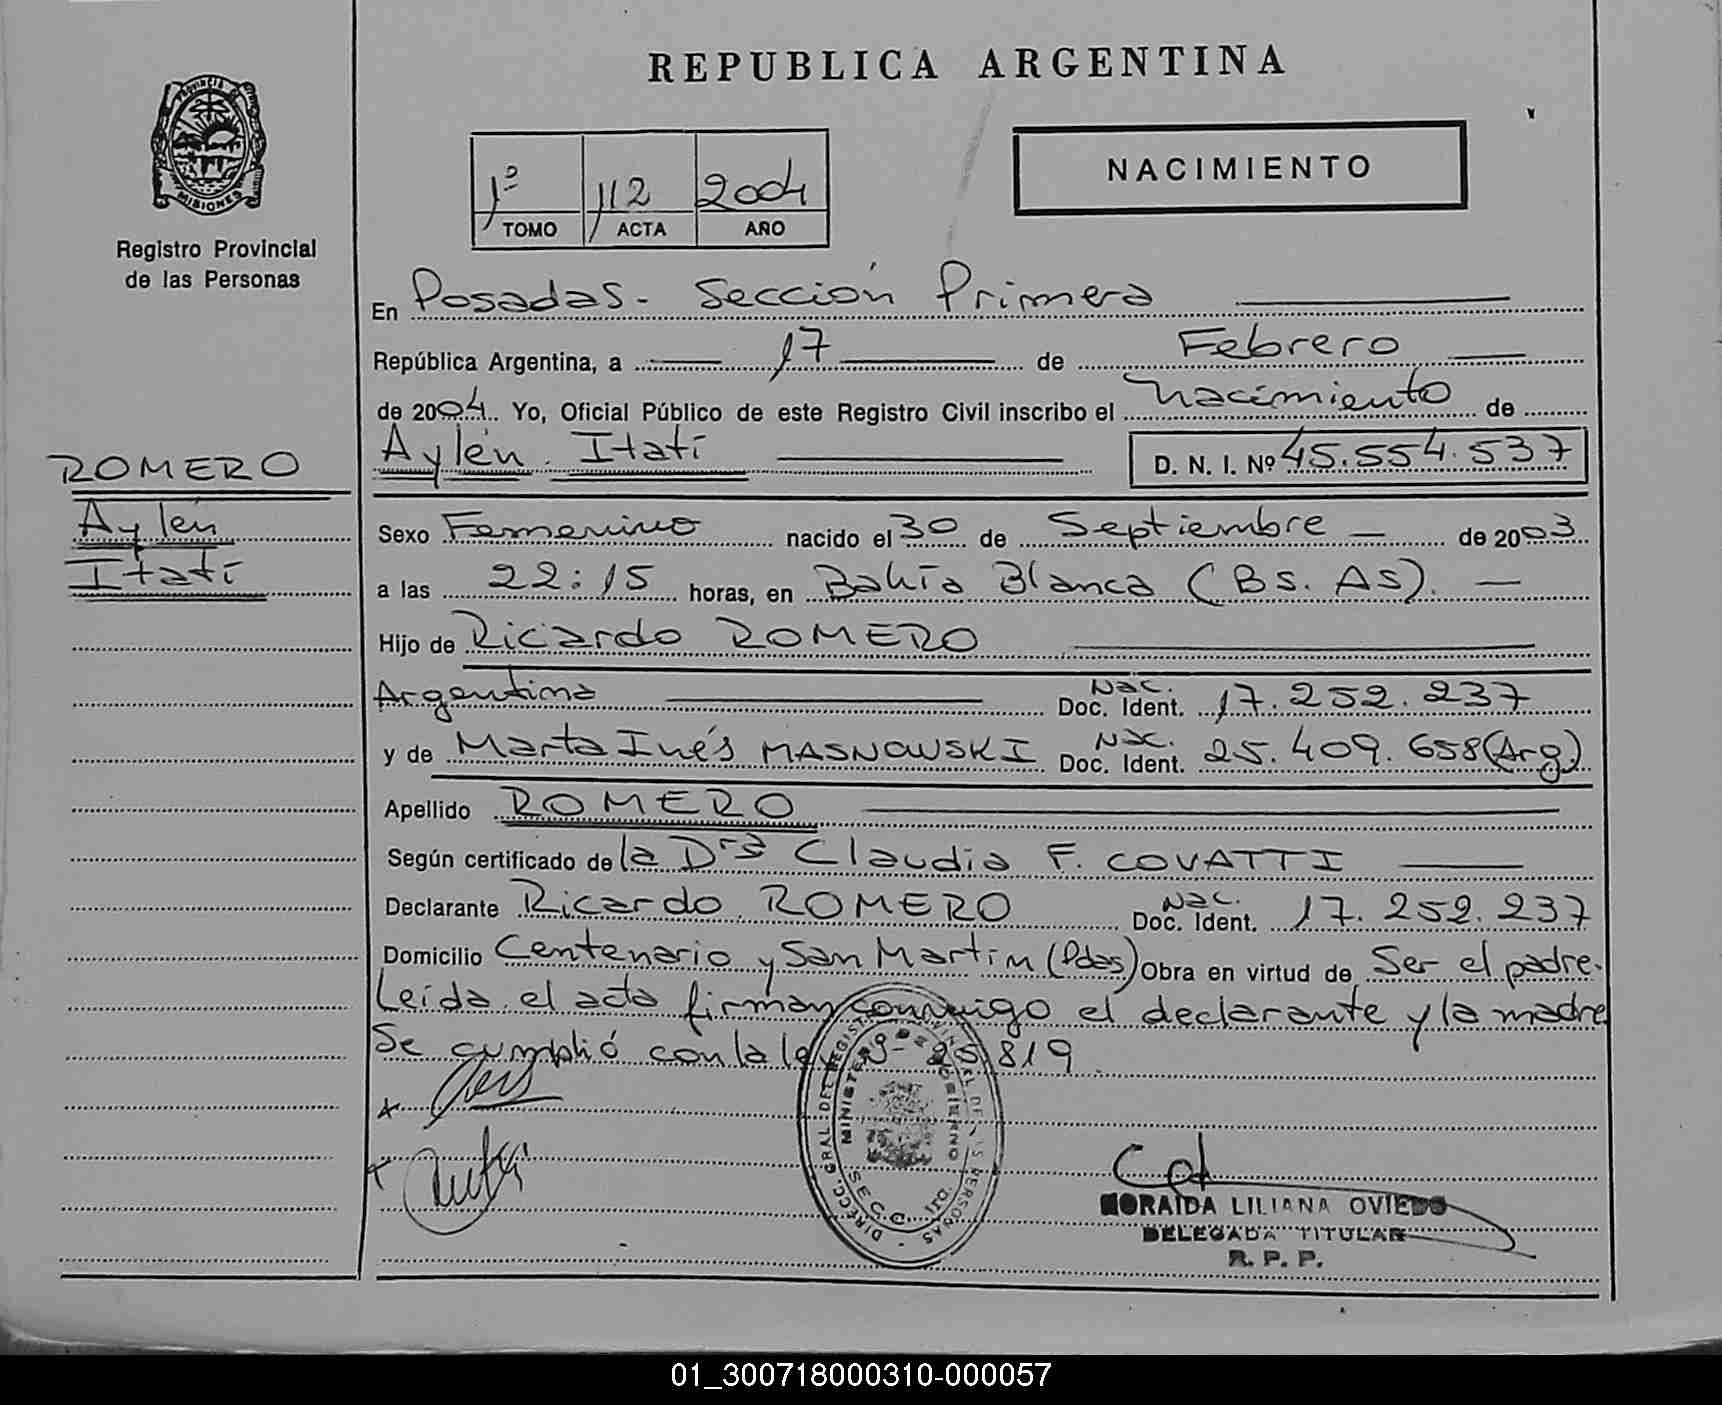 REPUBLICA ARGENTINA
PROVINCIA DE
MISIONES
Registro Provincial
de las Personas
1º 112 2004
TOMO ACTA AÑO
NACIMIENTO
En Posadas - Sección Primera
República Argentina, a 17 de Febrero
de 2004. Yo, Oficial Público de este Registro Civil inscribo el nacimiento de
Aylén Itatí D. N. I. Nº 45.554.537
ROMERO
Aylén
Itatí
Sexo Femenino nacido el 30 de Septiembre de 2003
a las 22:15 horas, en Bahía Blanca (Bs. As).
Hijo de Ricardo ROMERO
Argentina Nac. Doc. Ident. 17.252.237
y de Marta Inés MASNOWSKI Nac. Doc. Ident. 25.409.658 (Arg)
Apellido ROMERO
Según certificado de la Dra Claudia F. COVATTI
Declarante Ricardo ROMERO Nac. Doc. Ident. 17.252.237
Domicilio Centenario y San Martín (Pdas) Obra en virtud de Ser el padre.
Leída el acta firman conmigo el declarante y la madre
Se cumplió con la ley Nº 25819
DIRECC. GRAL. DEL REGIST. PROVINCIAL DE LAS PERSONAS
MINISTERIO DE GOBIERNO
SECC. 1ra.
MORAIDA LILIANA OVIEDO
DELEGADA TITULAR
R. P. P.
01_300718000310-000057